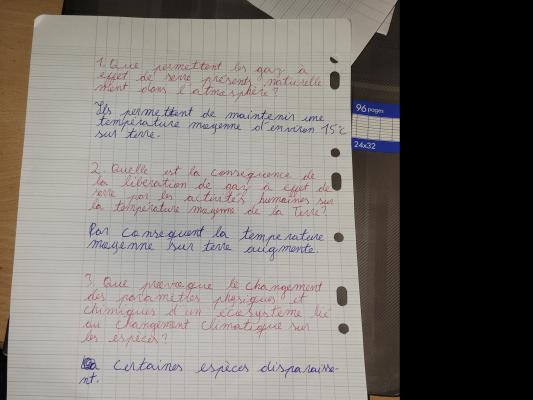 1. Que permettent les gaz à
effet de serre présents naturelle
ment dans l'atmosphère?
Ils permettent de maintenir une
température moyenne d'environ 15°C
sur terre.
2. Quelle est la conséquence de
la libération de gaz à effet de
serre par les activités humaines sur
la température moyenne de la Terre?
Par consequent la temperature
moyenne sur terre augmente.
3. Que provoque le changement
des paramètres physiques et
chimiques d'un écosystème lié
au changement climatique sur
les espèces?
certaines espèces disparaisse-
nt.
96 pages
24x32